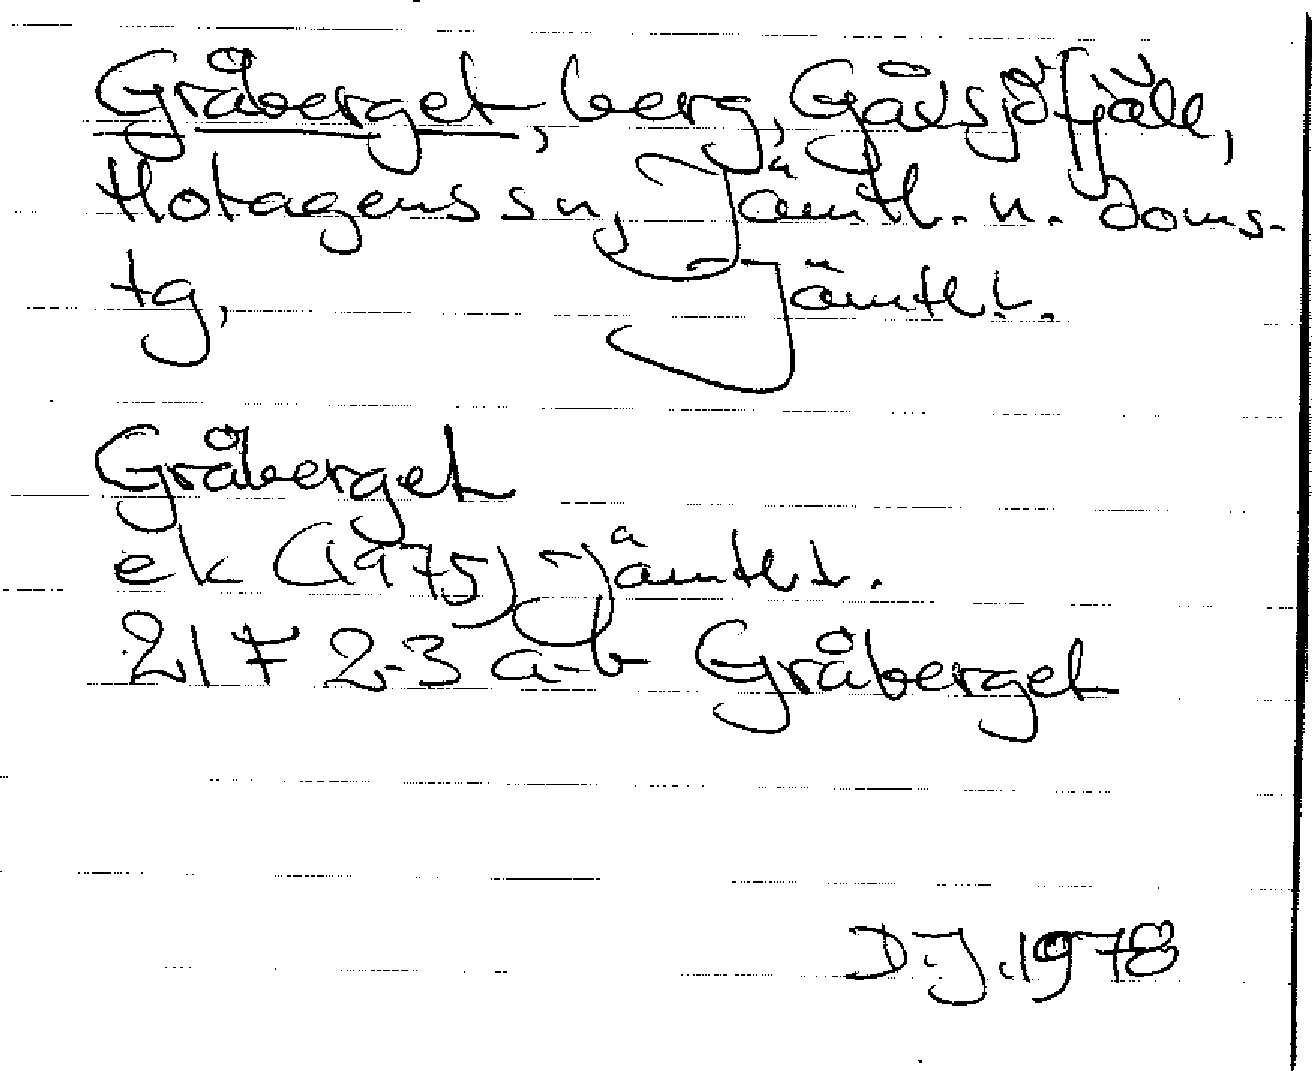 Gråberget, berg, Gåxsjöfjäll,
Hotagens sn, Jämtl. n. doms-
tg, Jämtl.l.
Gråberget
ek (1975) Jämtl l.
21 F 2-3 a-b Gråberget
D.J. 1978